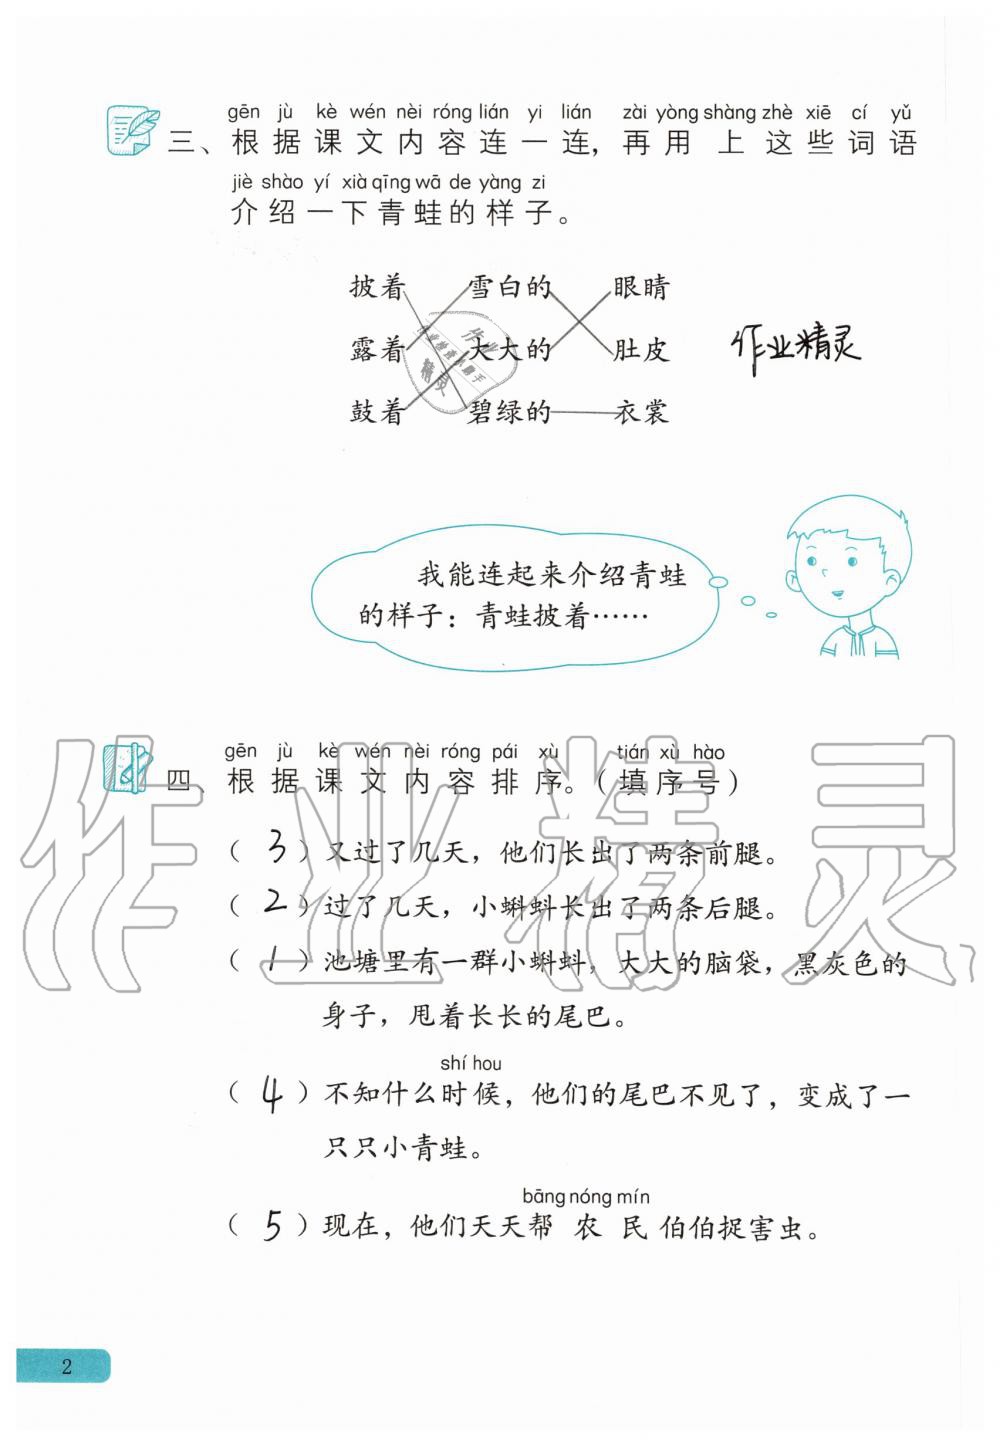 gēn jù kè wén nèi róng lián yi lián zài yòng shàng zhè xiē cí yǔ
三、根据课文内容连一连，再用上这些词语
jiè shào yí xià qīng wā de yàng zi
介绍一下青蛙的样子。
披着 雪白的 眼睛
露着 大大的 肚皮
鼓着 碧绿的 衣裳
作业精灵
作业
作业检查小助手
精灵
我能连起来介绍青蛙
的样子：青蛙披着……
gēn jù kè wén nèi róng pái xù tián xù hào
四、根据课文内容排序。（填序号）
（3）又过了几天，他们长出了两条前腿。
（2）过了几天，小蝌蚪长出了两条后腿。
（1）池塘里有一群小蝌蚪，大大的脑袋，黑灰色的
身子，甩着长长的尾巴。
shí hou
（4）不知什么时候，他们的尾巴不见了，变成了一
只只小青蛙。
bāng nóng mín
（5）现在，他们天天帮农民伯伯捉害虫。
作业精灵
2